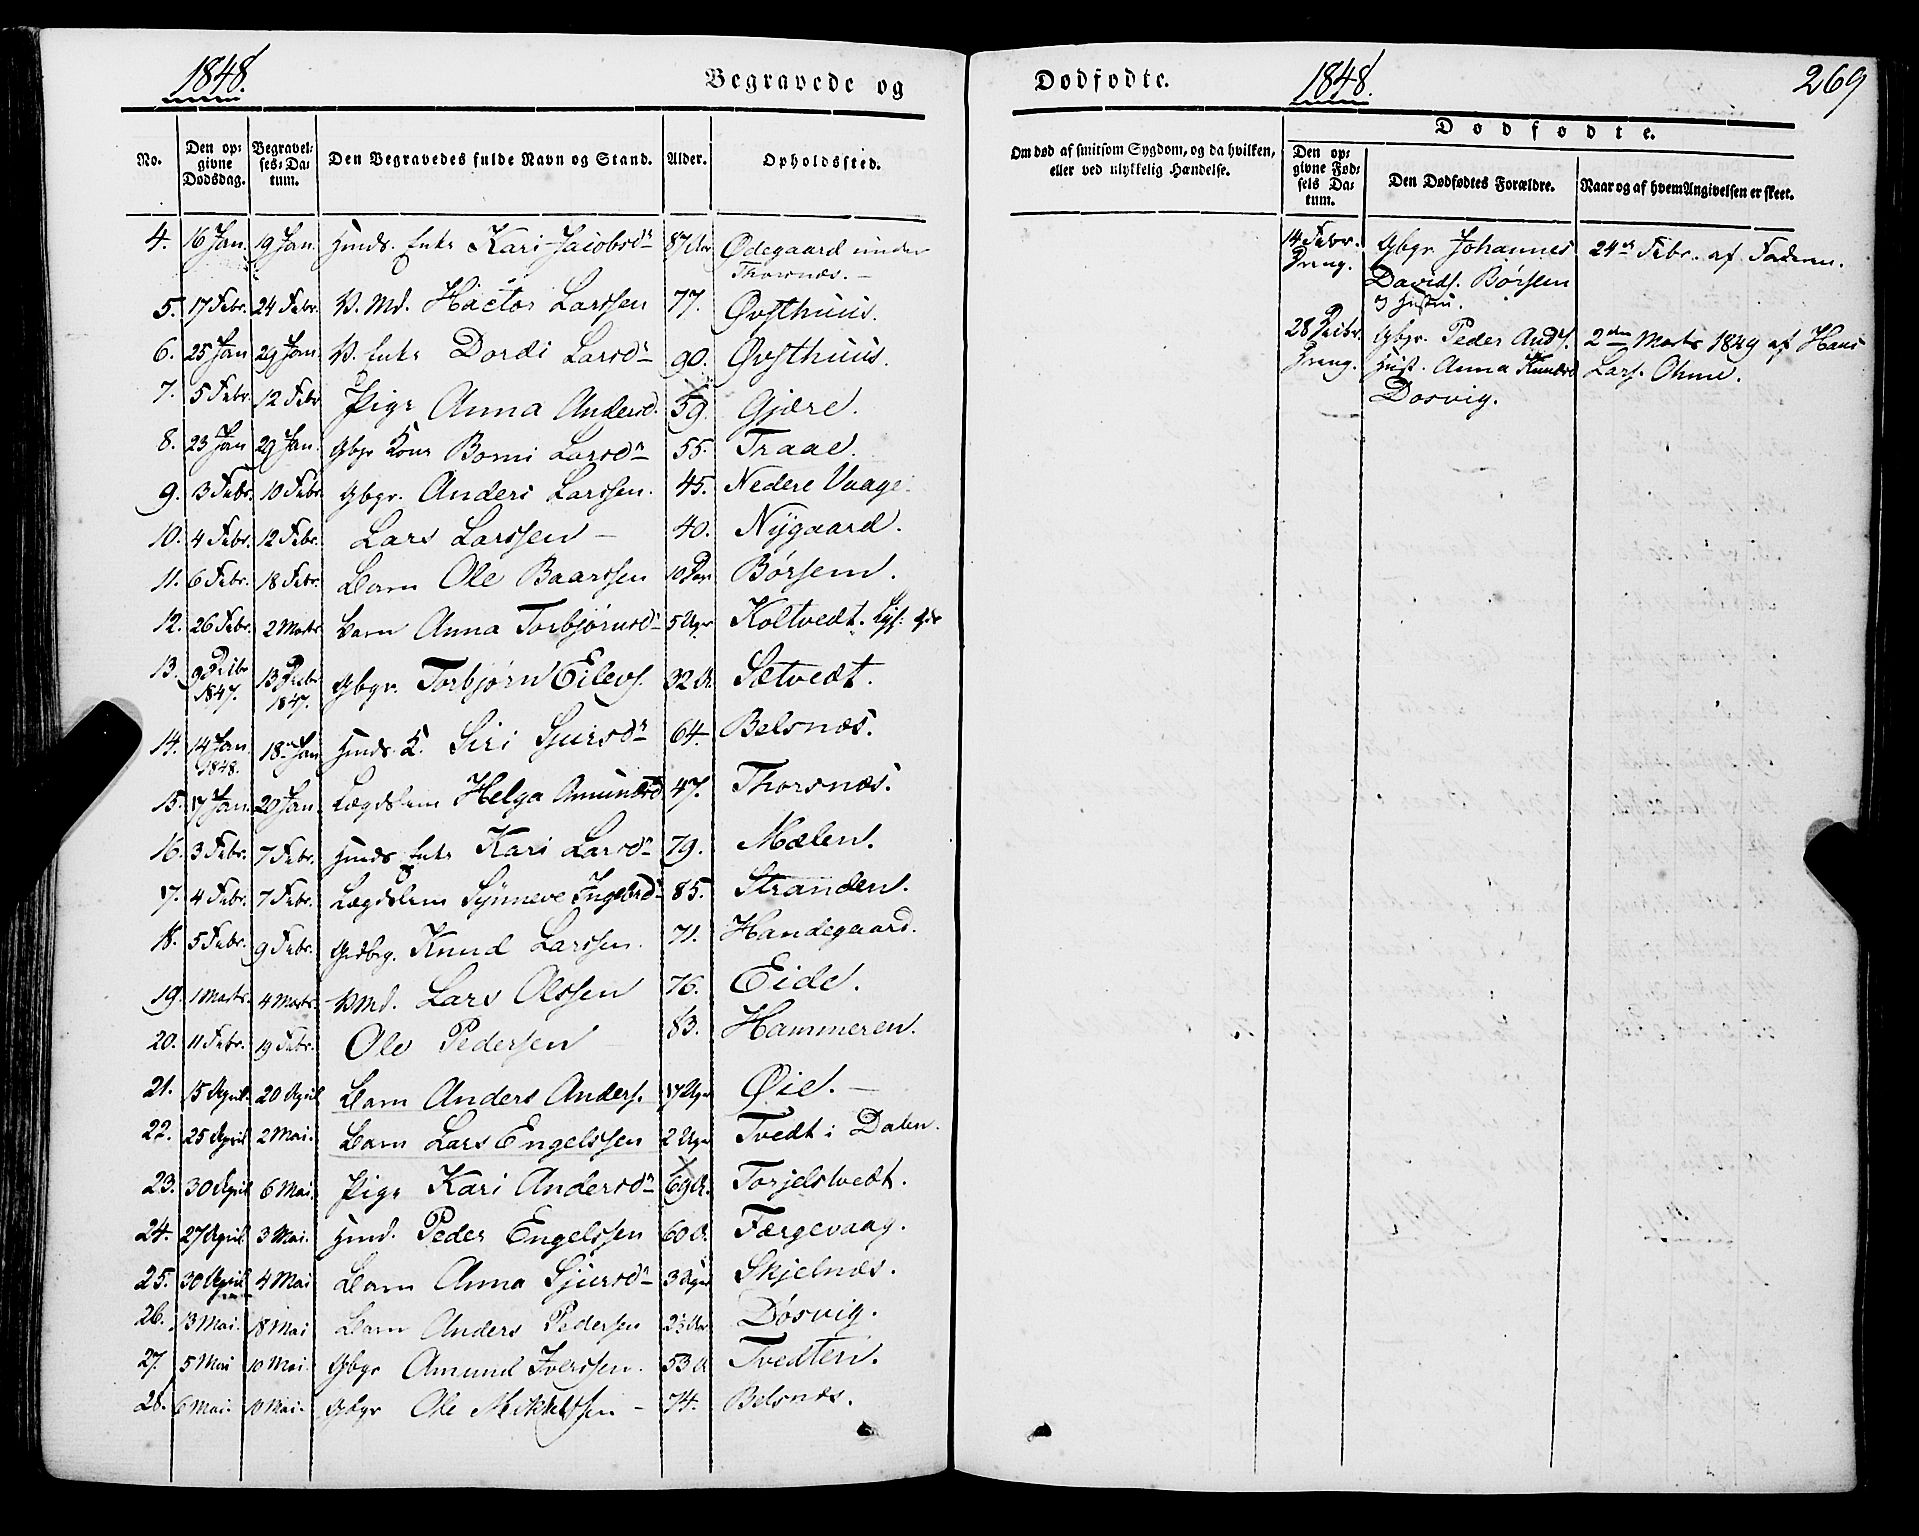 1848.
Begravede og
Dødfødte.
1848.
269
No.
Den opgivne Dødsdag.
Begravelses-Datum.
Den Begravedes fulde Navn og Stand.
Alder.
Opholdssted.
Om død af smitsom Sygdom, og da hvilken, eller ved ulykkelig Hændelse.
Dødfødte.
Den opgivne Fødsels Datum.
Den Dødfødtes Forældre.
Naar og af hvem Angivelsen er skeet.
4. 16 Jan. 19 Jan. Huusm. Enke Kari Jacobsdr 87 Aar Ødegaard under
Thorsnæs. —
5. 17 Febr. 24 Febr. V. Md. Hactor Larssen 77. Øvsthuus.
6. 25 Jan 29 Jan. V. Enke Dordi Larsdr 90. Øvsthuus.
7. 5 Febr. 12 Febr Pige Anna Andersd. 59. Gjære.
8. 23 Jan 29 Jan. Gbgr Kone Borni Larsdr 55. Traae.
9. 3 Febr. 10 Febr. Gbgr. Anders Larssen. 45. Nedere Vaage.
10. 4 Febr. 12 Febr. Lars Larssen — 40. Nygaard.
11. 6 Febr. 18 Febr. Barn Ole Baarssen 10 Dage Børsem.
12. 26 Febr. 2 Marts Barn Anna Torbjørnsdr 5 Uger Koltvedt.
13. 9 Decbr 1847. 13 Decbr 1847. Gbgr. Torbjørn Eilevs. 32 A. Sætvedt.
14. 14 Jan. 1848. 18 Jan K. Siri Sjursdr 64. Belsnæs.
15. 17 Jan. 20 Jan. Lægdslem Helga Amundsd 47. Thorsnæs.
16. 3 Febr. 7 Febr. Enke Kari Larsdr 79. Mælen.
17. 4 Febr. 7 Febr. Lægdslem Synneve Ingebrd 85. Stranden.
18. 5 Febr. 9 Febr. Grdbrg. Knud Larssen. 71. Handegaard.
19. 1 Marts. 4 Marts. V Md. Lars Olssen 76. Eide.
20. 11 Febr. 19 Febr. Ole Pedersen — 83. Hammeren.
21. 15 April. 20 April Barn Anders Anders. 17 Uger Øie. —
22. 25 April 2 Mai. Barn Lars Engelssen 2 Uger Tvedt i Dalen.
23. 30 April 6 Mai. Pige Kari Andersdr 69 A. Torjelstvedt.
24. 27 April 3 Mai. Hmd. Peder Engelssen 60 A. Færgevaag.
25. 30 April 4 Mai Barn Anna Sjursdr 3 Uger Skjelnæs.
26. 13 Mai. 18 Mai Barn Anders Pedersen 2½ Aar Døsvig.
27. 5 Mai 10 Mai. Gbgr Amund Iverssen. 53 A Tvedten.
28. 6 Mai. 10 Mai. Gbgr Ole Mikkelssen — 74. Belsnæs.
14 Febr. Dreng. Gbgr Johannes Davids. Børsem og Hustru. 24de Febr. af Faderen.
28 Decbr. Dreng. Gbgr. Peder Ands. Hust. Anna Knudsd Dosvig. 2den Marts 1849 af Hans Lars. Ohme.